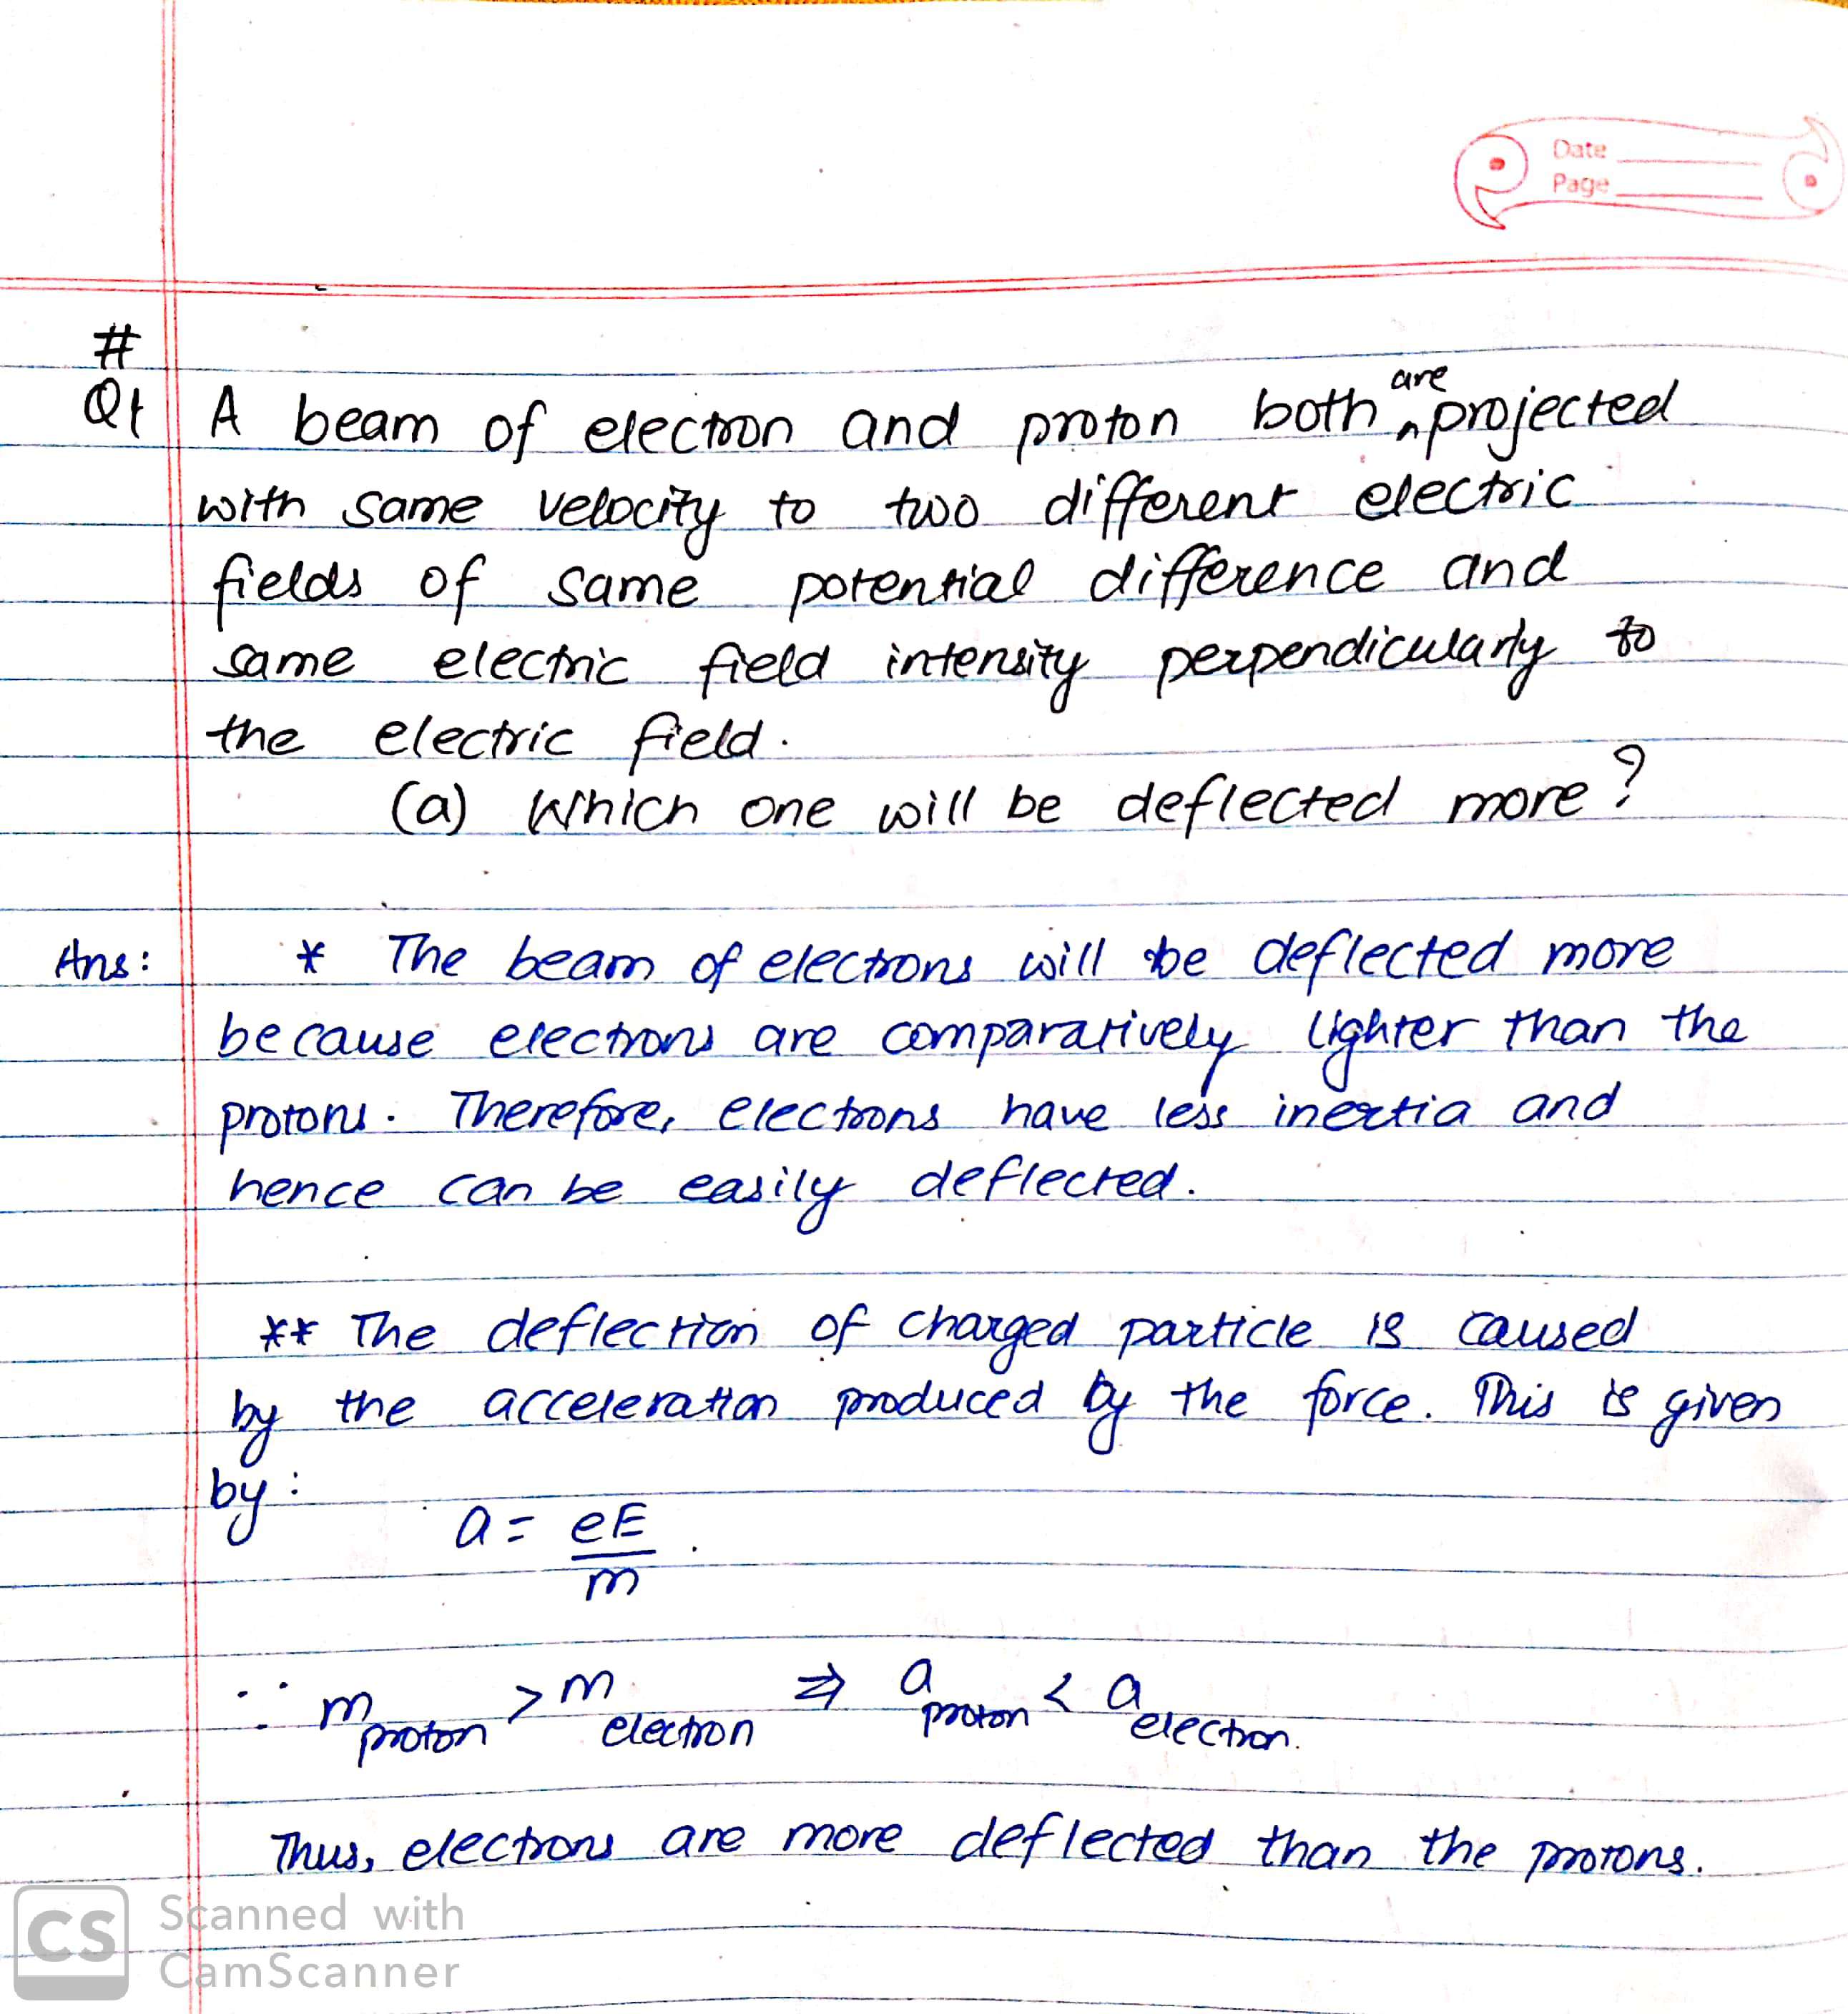 Date
Page
#
Q1 A beam of electron and proton both are projected
with same velocity to two different electric
fields of same potential difference and
same electric field intensity perpendicularly to
the electric field.
(a) Which one will be deflected more?
Ans: * The beam of electrons will be deflected more
because electrons are comparatively lighter than the
protons. Therefore, electrons have less inertia and
hence can be easily deflected.
** The deflection of charged particle is caused
by the acceleration produced by the force. This is given
by:
a = eE/m.
∵ m_proton > m_electron ⇒ a_proton < a_electron.
Thus, electrons are more deflected than the protons.
CS Scanned with
CamScanner